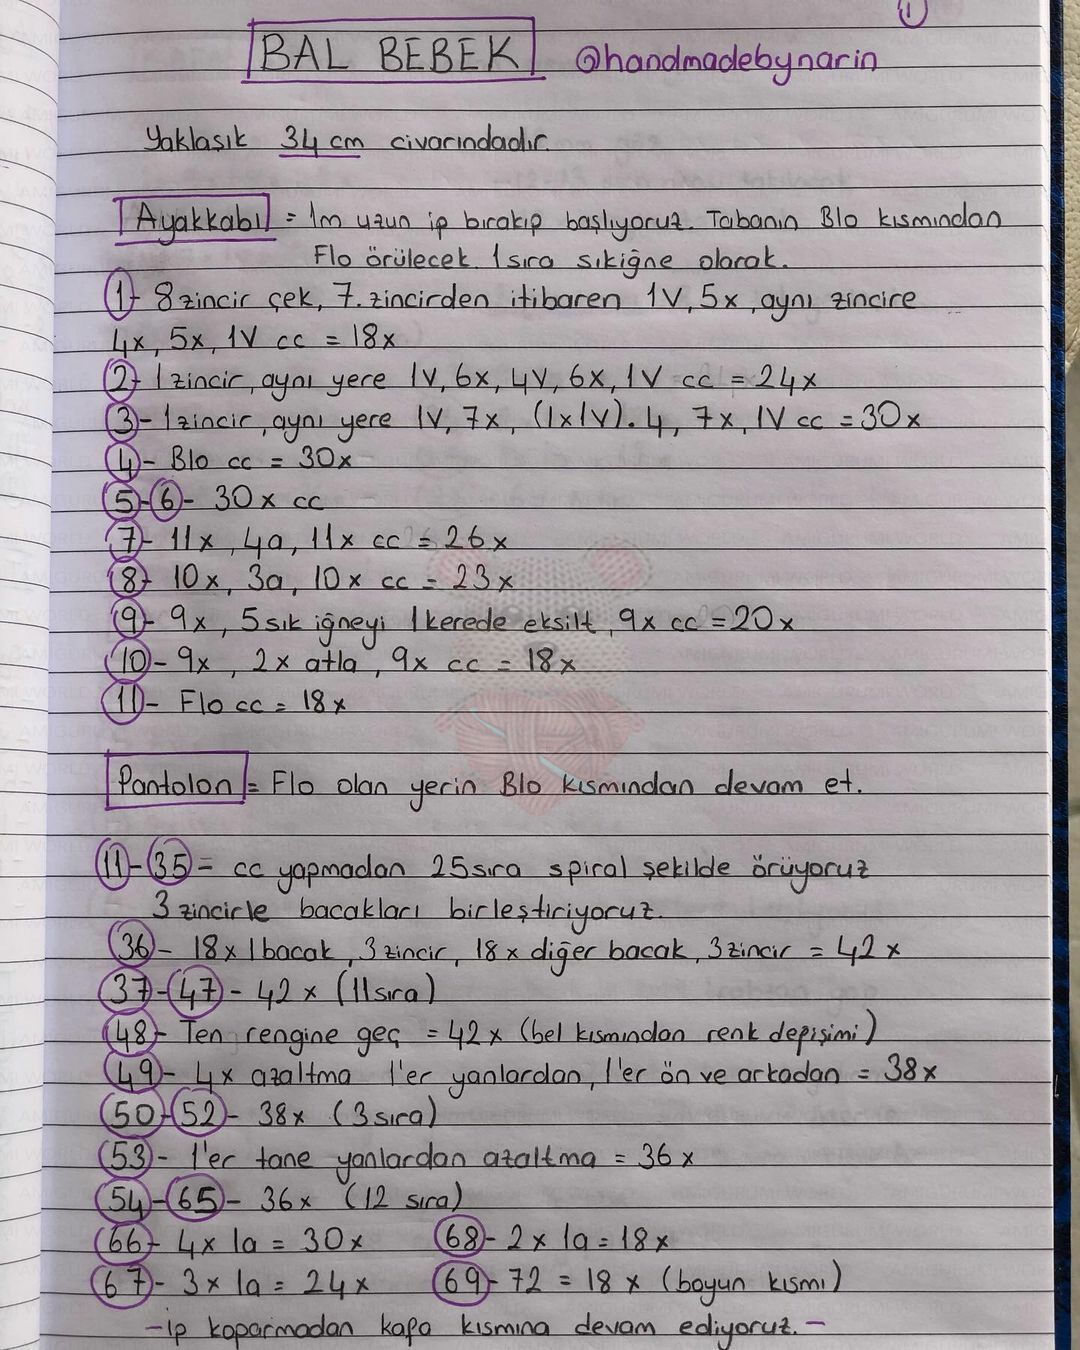 1
BAL BEBEK @handmadebynarin
Yaklaşık 34 cm civarındadır.
Ayakkabı = 1m uzun ip bırakıp başlıyoruz. Tabanın Blo kısmından
Flo örülecek. 1 sıra sıkiğne olarak.
1- 8 zincir çek, 7. zincirden itibaren 1V, 5x, aynı zincire
4x, 5x, 1V cc = 18x
2- 1 zincir, aynı yere 1V, 6x, 4V, 6x, 1V cc = 24x
3- 1 zincir, aynı yere 1V, 7x, (1x1V).4, 7x, 1V cc = 30x
4- Blo cc = 30x
5-6- 30x cc
7- 11x, 4a, 11x cc = 26x
8- 10x, 3a, 10x cc = 23x
9- 9x, 5 sık iğneyi 1 kerede eksilt, 9x cc = 20x
10- 9x, 2x atla, 9x cc = 18x
11- Flo cc = 18x
Pantolon = Flo olan yerin Blo kısmından devam et.
11-35 = cc yapmadan 25 sıra spiral şekilde örüyoruz
3 zincirle bacakları birleştiriyoruz.
36- 18x 1 bacak, 3 zincir, 18x diğer bacak, 3 zincir = 42x
37-47- 42x (11 sıra)
48- Ten rengine geç = 42x (bel kısmından renk depişimi)
49- 4x azaltma 1'er yanlardan, 1'er ön ve arkadan = 38x
50-52- 38x (3 sıra)
53- 1'er tane yanlardan azaltma = 36x
54-65- 36x (12 sıra)
66- 4x 1a = 30x 68- 2x 1a = 18x
67- 3x 1a = 24x 69-72 = 18x (boyun kısmı)
-ip koparmadan kafa kısmına devam ediyoruz.-